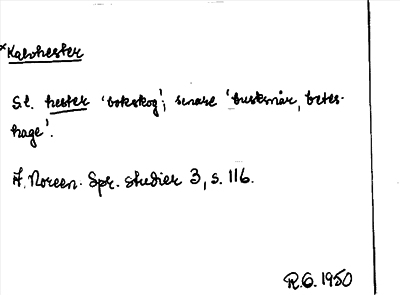 *Kalvhester
S.l. hester 'bokskog'; senare 'busksnår, betes-
hage'.
A. Noreen. Spr. studier 3, s. 116.
R.G. 1950